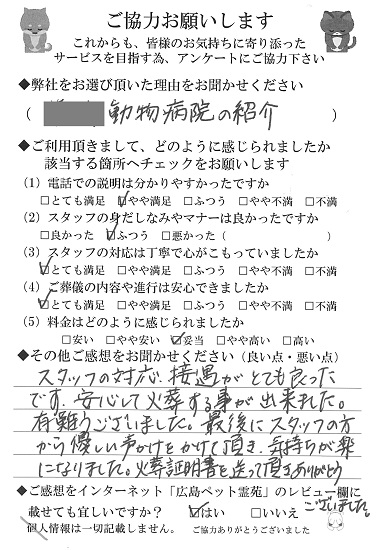 ご協力お願いします
これからも、皆様のお気持ちに寄り添った
サービスを目指す為、アンケートにご協力下さい
◆弊社をお選び頂いた理由をお聞かせください
( 動物病院の紹介 )
◆ご利用頂きまして、どのように感じられましたか
該当する箇所へチェックをお願いします
(1) 電話での説明は分かりやすかったですか
□とても満足 ☑やや満足 □ふつう □やや不満 □不満
(2) スタッフの身だしなみやマナーは良かったですか
□良かった ☑ふつう □悪かった ( )
(3) スタッフの対応は丁寧で心がこもっていましたか
☑とても満足 □やや満足 □ふつう □やや不満 □不満
(4) ご葬儀の内容や進行は安心できましたか
☑とても満足 □やや満足 □ふつう □やや不満 □不満
(5) 料金はどのように感じられましたか
□安い □やや安い ☑妥当 □やや高い □高い
◆その他ご感想をお聞かせください (良い点・悪い点)
スタッフの対応、接遇がとても良かった
です。安心して火葬する事が出来ました。
有難うございました。最後にスタッフの方
から優しい声かけをかけて頂き、気持ちが楽
になりました。火葬証明書を送って頂きありがとう
ございました。
◆ご感想をインターネット「広島ペット霊苑」のレビュー欄に
載せても宜しいですか? ☑はい □いいえ
個人情報は一切記載しません。 ご協力ありがとうございました